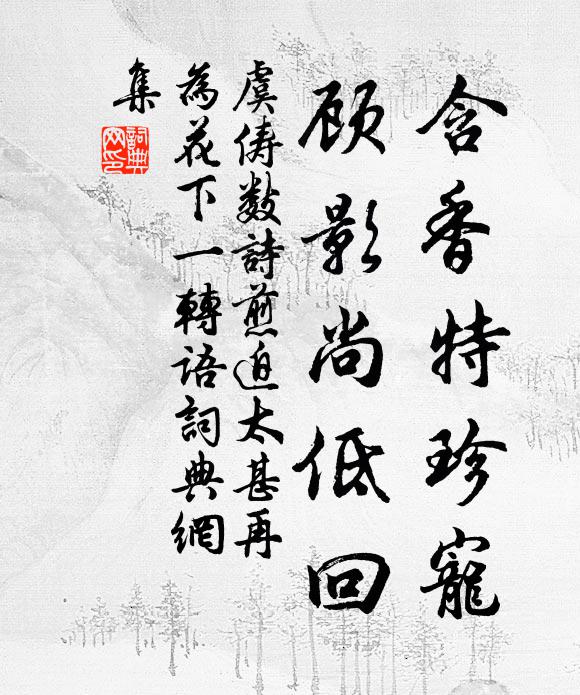 含香特珍寵
顾影尚低回
虞俦数詩煎迫太甚再
為花下一轉语詞典網
集
詞典
网印